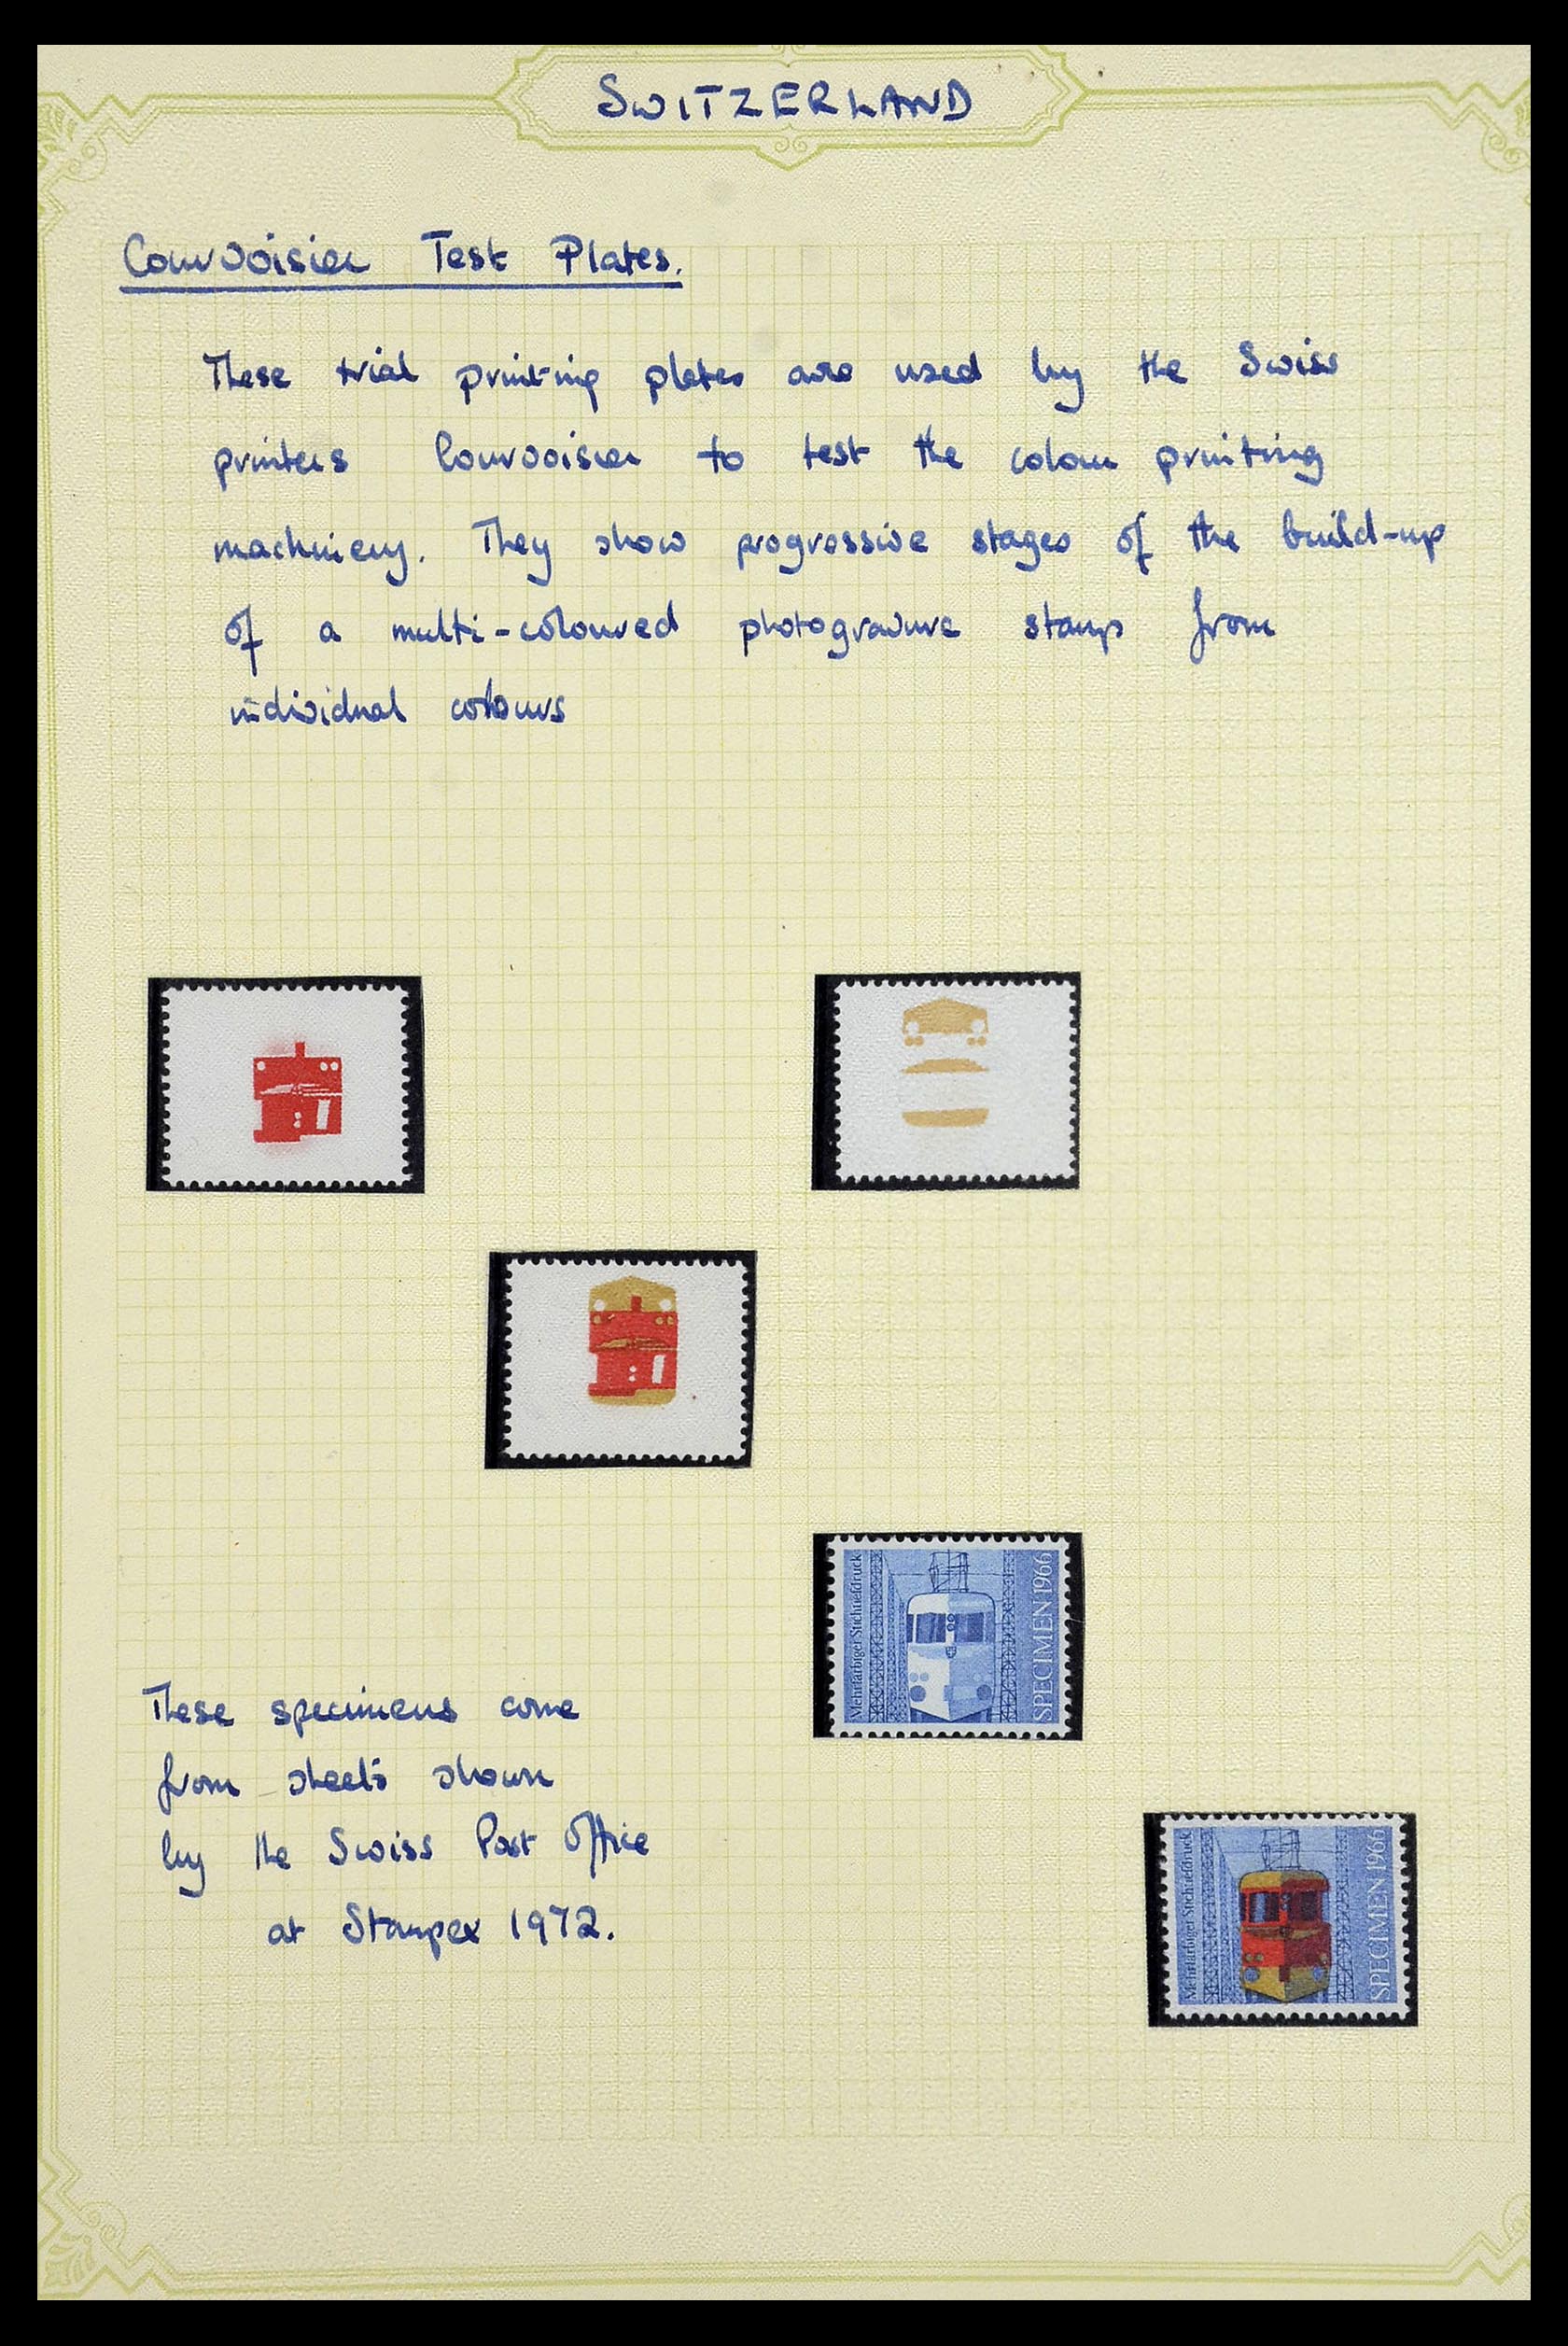 SWITZERLAND
Courvoisier Test Plates.
These trial printing plates are used by the Swiss
printers Courvoisier to test the colour printing
machinery. They show progressive stages of the build-up
of a multi-coloured photogravure stamp from
individual colours
Mehrfarbiger Stichtiefdruck
SPECIMEN 1966
These specimens come
from sheets shown
by the Swiss Post Office
at Stampex 1972.
Mehrfarbiger Stichtiefdruck
SPECIMEN 1966